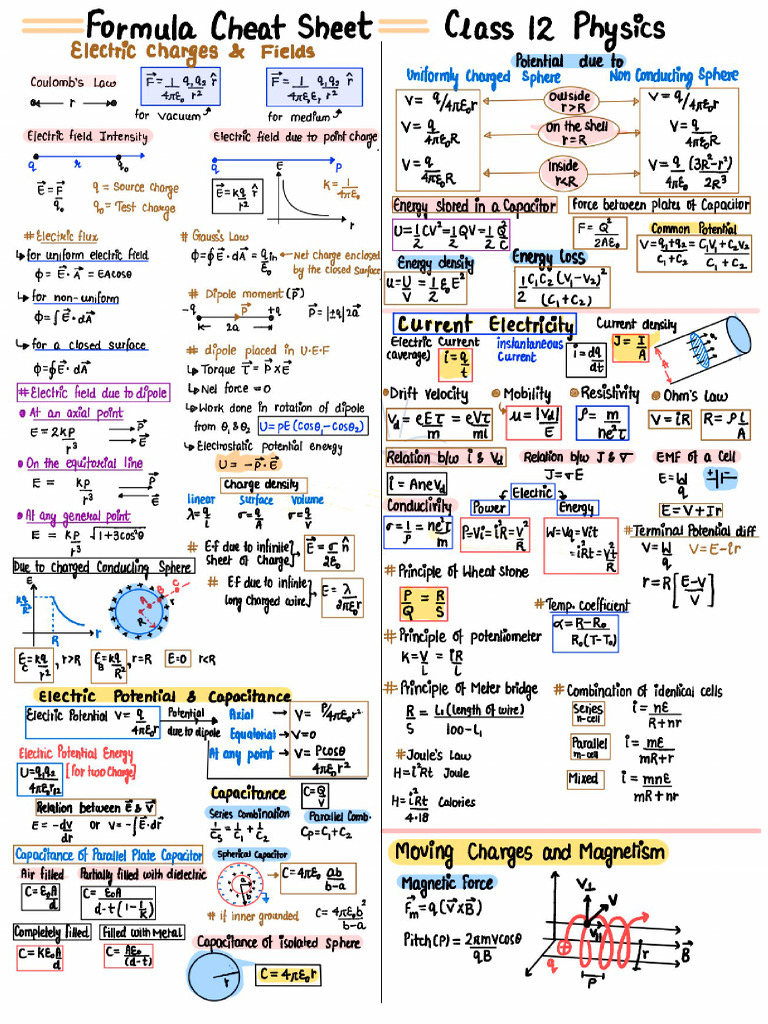 Formula Cheat Sheet
Class 12 Physics
Electric Charges & Fields
Coulomb's Law
r
F⃗ = 1/4πε₀ q₁q₂/r² r̂
for vacuum
F⃗ = 1/4πε₀εᵣ q₁q₂/r² r̂
for medium
Electric field Intensity
q r q₀
E⃗ = F⃗/q₀
q = Source charge
q₀ = Test charge
Electric field due to point charge
q P
E⃗ = kq/r² r̂
E
r
K = 1/4πε₀
# Electric flux
for uniform electric field
ϕ = E⃗·A⃗ = EACosθ
for non-uniform
ϕ = ∫E⃗·dA⃗
for a closed surface
ϕ = ∮E⃗·dA⃗
# Gauss's Law
ϕ = ∮E⃗·dA⃗ = qᵢₙ/ε₀
Net charge enclosed
by the closed Surface
# Dipole moment (P⃗)
-q P⃗ +q
2a
P⃗ = |±q|2a⃗
# dipole placed in U.E.F
Torque τ⃗ = P⃗×E⃗
Net force = 0
Work done in rotation of dipole
from θ₁ & θ₂ U = PE(Cosθ₁-Cosθ₂)
Electrostatic potential energy
U = -P⃗·E⃗
# Electric field due to dipole
At an axial point
E = 2KP/r³
P⃗
E⃗
On the equitorial line
E = KP/r³
P⃗
E⃗
At any general point
E = KP/r³ √1+3cos²θ
Charge density
linear Surface volume
λ = q/L σ = q/A σ = q/V
# E·f due to infinite
Sheet of Charge
E⃗ = σ/2ε₀ n̂
# E.f due to infinite
long charged wire
E = λ/2πε₀r
Due to charged Conducting Sphere
E
kq/R²
R
r
A B C
R
E_C = kq/r², r>R
E_B = kq/R², r=R
E=0 r<R
Electric Potential & Capacitance
Electric Potential V = q/4πε₀r
Potential
due to dipole
Axial V = P/4πε₀r²
Equatorial V=0
At any point V = PCosθ/4πε₀r²
Electric Potential Energy
U = q₁q₂/4πε₀r₁₂
[for two Charge]
Relation between E⃗ & V⃗
E = -dV/dr or V = -∫E⃗·dr⃗
Capacitance
C = Q/V
Series Combination
1/Cs = 1/C₁ + 1/C₂
Parallel Comb.
Cp = C₁+C₂
Capacitance of Parallel Plate Capacitor
Air filled
C = ε₀A/d
Partially filled with dielectric
C = ε₀A/d-t(1-1/K)
Completely filled
C = Kε₀A/d
Filled with Metal
C = Aε₀/(d-t)
Spherical Capacitor
a
b
C = 4πε₀ ab/b-a
# if inner grounded C = 4πε₀b²/b-a
Capacitance of isolated sphere
r
C = 4πε₀r
Potential due to
Uniformly Charged Sphere
Non Conducting Sphere
V = q/4πε₀r
Outside
r>R
V = q/4πε₀r
V = q/4πε₀R
On the shell
r = R
V = q/4πε₀R
V = q/4πε₀R
Inside
r<R
V = q/4πε₀ (3R²-r²)/2R³
Energy stored in a Capacitor
U = 1/2 CV² = 1/2 QV = 1/2 Q²/C
Force between plates of Capacitor
F = Q²/2Aε₀
Common Potential
V = q₁+q₂/C₁+C₂ = C₁V₁+C₂V₂/C₁+C₂
Energy density
u = U/V = 1/2 ε₀E²
Energy loss
1/2 C₁C₂(V₁-V₂)²/(C₁+C₂)
Current Electricity
Electric Current
(average)
i = q/t
instantaneous
Current
i = dq/dt
Current density
J = I/A
Drift Velocity
Vd = eEτ/m = eVτ/ml
Mobility
μ = |Vd|/E
Resistivity
ρ = m/ne²τ
Ohm's law
V = iR R = ρL/A
Relation b/w i & Vd
i = AneVd
Relation b/w J & σ
J = σE
EMF of a Cell
E = W/q
+ -
E = V+Ir
Conductivity
σ = 1/ρ = ne²τ/m
Electric
Power
P = Vi = i²R = V²/R
Energy
W = Vq = Vit
= i²Rt = V²t/R
# Terminal Potential diff
V = W/q V = E-ir
r = R[E-V/V]
# Principle of Wheat stone
P/Q = R/S
# Temp. coefficient
α = R-R₀/R₀(T-T₀)
# Principle of potentiometer
K = V/L = iR/L
# Principle of Meter bridge
R/S = L₁(length of wire)/100-L₁
# Combination of identical cells
Series
n-cell
i = nE/R+nr
Parallel
m-cell
i = mE/mR+r
Mixed
i = mnE/mR+nr
# Joule's Law
H = i²Rt Joule
H = i²Rt/4.18 Calories
Moving Charges and Magnetism
Magnetic Force
F⃗m = q(V⃗×B⃗)
Pitch(P) = 2πmvcosθ/qB
V⊥
V
V∥
q
P
r
B⃗